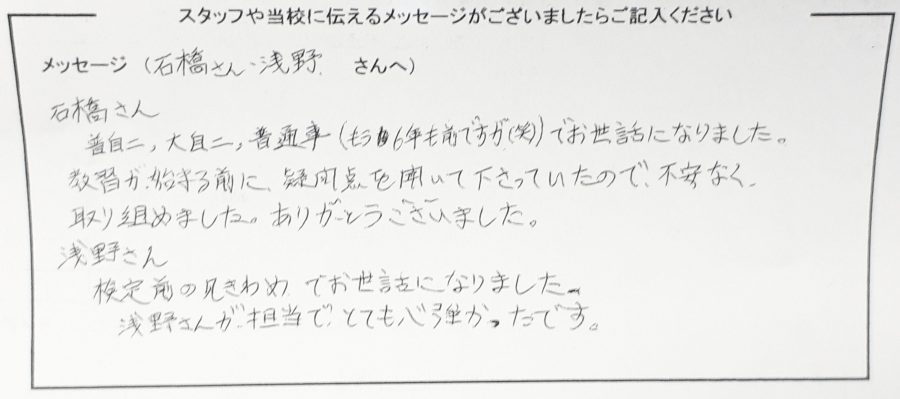 スタッフや当校に伝えるメッセージがございましたらご記入ください
メッセージ（石橋さん・浅野 さんへ）
石橋さん
普自二，大自二，普通車（もう6年も前ですが(笑)）でお世話になりました。
教習が始まる前に、疑問点を聞いて下さっていたので、不安なく、
取り組めました。ありがとうございました。
浅野さん
検定前の見きわめでお世話になりました。
浅野さんが担当で、とても心強かったです。